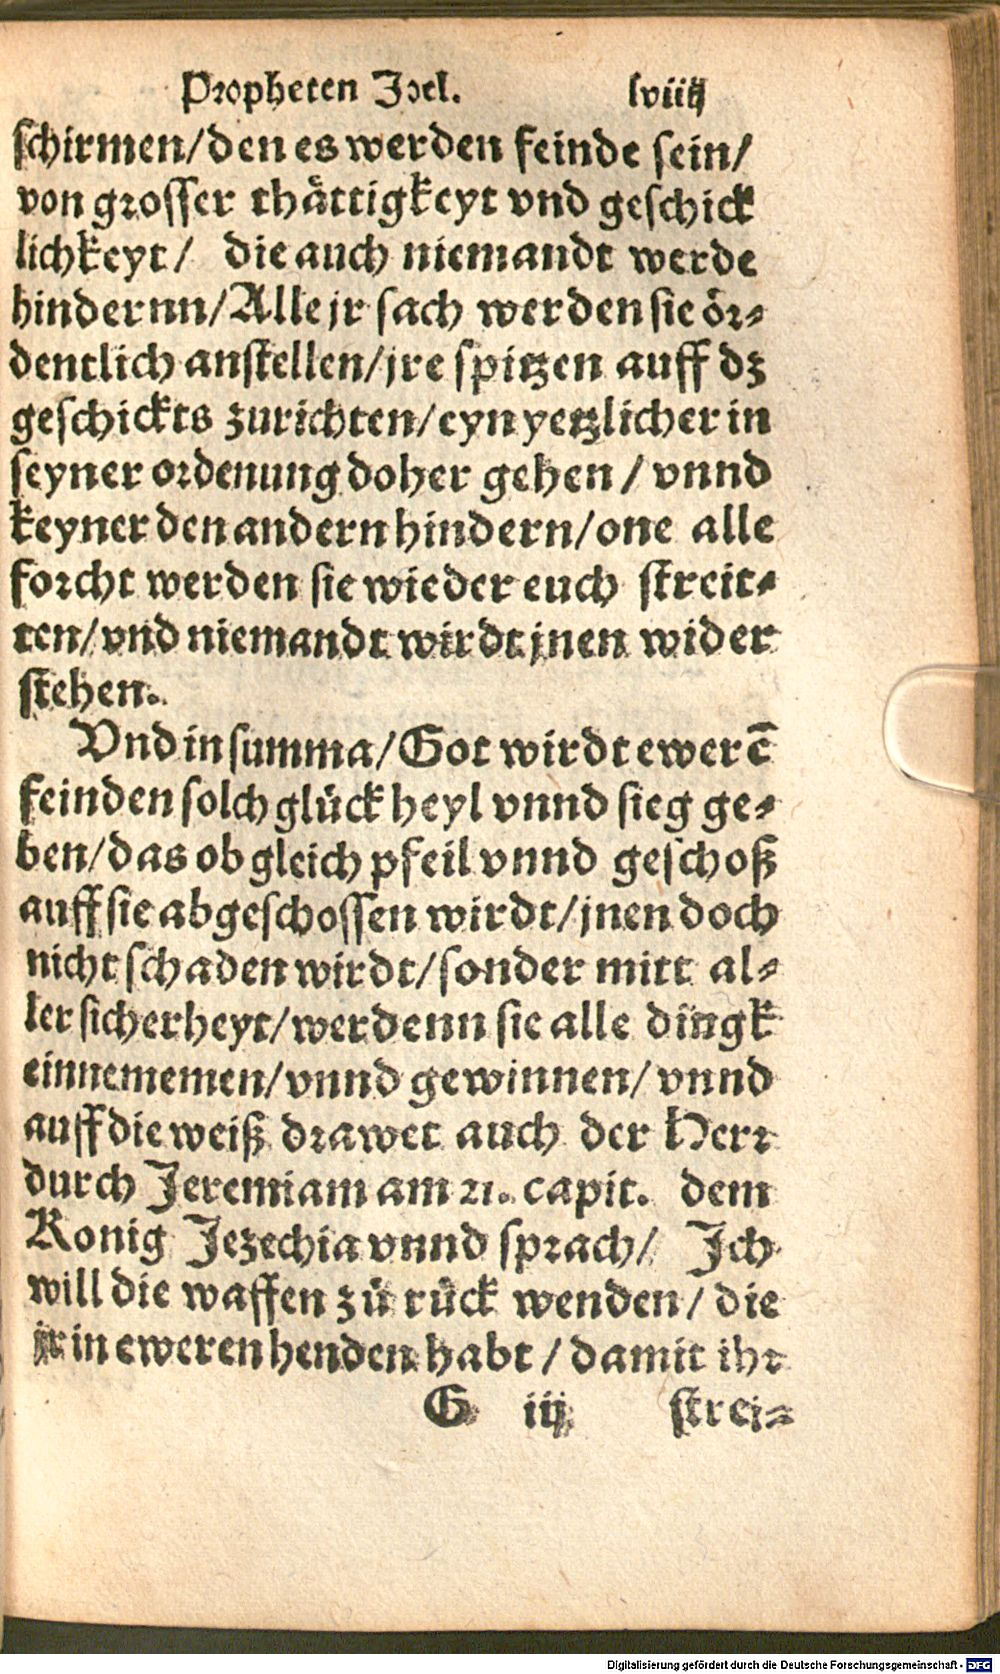 Propheten Joel. lviiij
schirmen/den es werden feinde sein/
von grosser thåttigkeyt vnd geschick
lichkeyt/ die auch niemandt werde
hindernn/Alle jr sach werden sie ör-
dentlich anstellen/jre spitzen auff dz
geschickts zurichten/eyn yetzlicher in
seyner ordenung doher gehen / vnnd
keyner den andern hindern/one alle
forcht werden sie wieder euch streit-
ten/vnd niemandt wirdt jnen wider
stehen.
Vnd in summa/Got wirdt ewerē
feinden solch glück heyl vnnd sieg ge-
ben/das ob gleich pfeil vnnd geschoß
auff sie abgeschossen wirdt/jnen doch
nicht schaden wirdt/sonder mitt al-
ler sicherheyt/werdenn sie alle dingk
einnememen/vnnd gewinnen/vnnd
auff die weiß drawet auch der Herr
durch Jeremiam am 21. capit. dem
Konig Jezechia vnnd sprach/ Jch
will die waffen zů růck wenden/die
jr in eweren henden habt / damit ihr
G iij strei-
Digitalisierung gefördert durch die Deutsche Forschungsgemeinschaft - DFG